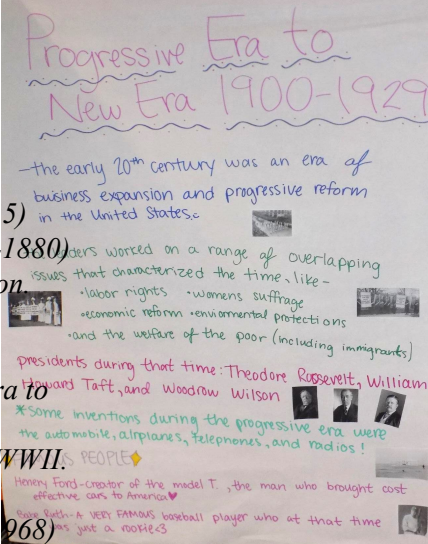 Progressive Era to
New Era 1900-1929
-the early 20th century was an era of
business expansion and progressive reform
5) in the United States.
1880) ders worked on a range of overlapping
on. issues that characterized the time, like-
•labor rights •womens suffrage
•economic reform •enviormental protections
•and the welfare of the poor (including immigrants)
presidents during that time: Theodore Roosevelt, William
ra to Howard Taft, and Woodrow Wilson
*Some inventions during the progressive era were
the automobile, airplanes, telephones, and radios!
WWII. PEOPLE
Henery Ford-creator of the model T., the man who brought cost
effective cars to America♥
Babe Ruth-A VERY FAMOUS baseball player who at that time
968) was just a rookie<3